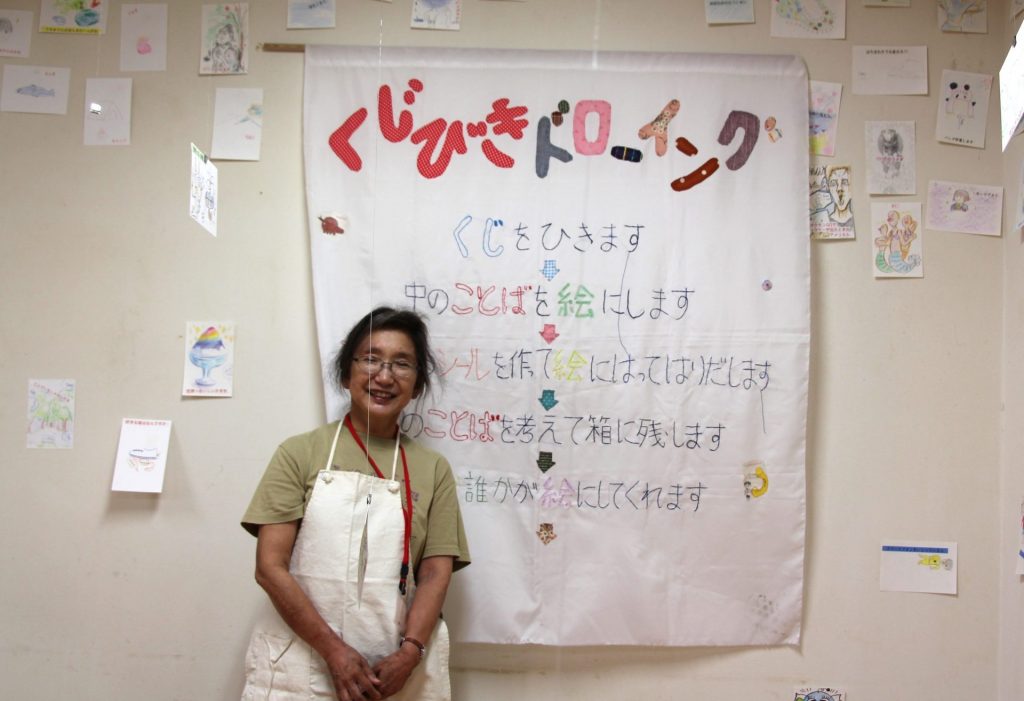 くじびきドローイング
くじをひきます
中のことばを絵にします
シールを作って絵にはってはりだします
のことばを考えて箱に残します
誰かが絵にしてくれます